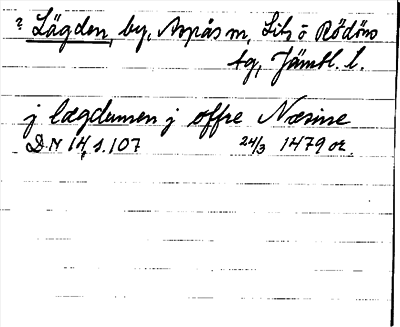 ? Lägden, by, Aspås sn, Lits o Rödöns
tg, Jämtl. l.
j lægdumen j offre Næsine
DN 14, s. 107 24/3 1479 or.